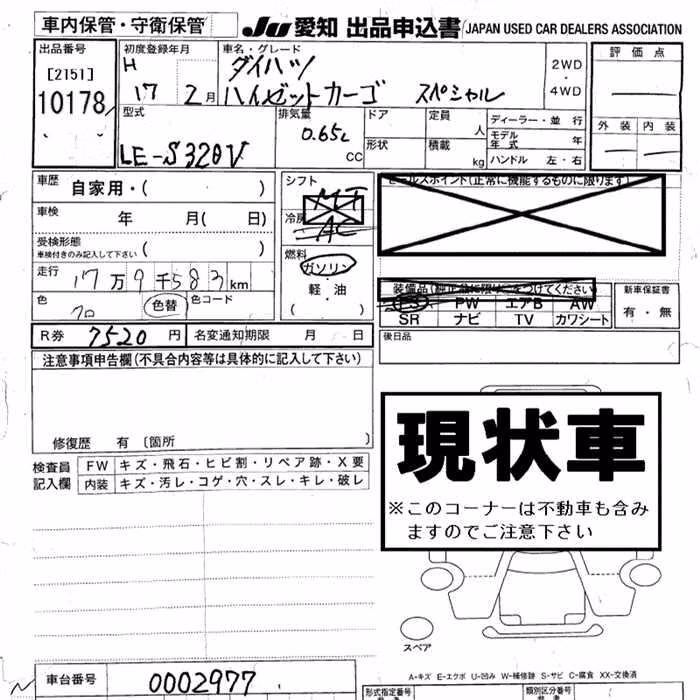 車内保管・守衛保管
JU 愛知 出品申込書 JAPAN USED CAR DEALERS ASSOCIATION
出品番号 初度登録年月 車名・グレード 評価点
[2151] H ダイハツ 2WD
10178 17 2月 ハイゼットカーゴ スペシャル 4WD
型式 排気量 ドア 定員 ディーラー・並行 外装 内装
LE-S320V 0.65L CC 形状 人 モデル年式 年
積載 kg ハンドル 左・右
車歴 自家用・( ) シフト MT セールスポイント(正常に機能するものに限ります)
車検 年 月( 日) 冷房 AC
受検形態 ( )
車検付きのみ記入して下さい
燃料 ガソリン・軽油 ( )
走行 17万9千583km
色 クロ 色替 色コード
装備品(純正品に限り○をつけてください) 新車保証書
PS PW エアB AW 有・無
SR ナビ TV カワシート
R券 7520円 名変通知期限 月 日 後日品
注意事項申告欄(不具合内容等は具体的に記入して下さい)
修復歴 有〔箇所 〕
現状車
※このコーナーは不動車も含み
ますのでご注意下さい
検査員 FW キズ・飛石・ヒビ割・リペア跡・X要
記入欄 内装 キズ・汚レ・コゲ・穴・スレ・キレ・破レ
スペア
A-キズ E-エクボ U-凹み W-補修跡 S-サビ C-腐食 XX-交換済
車台番号 0002977 形式指定番号 類別区分番号